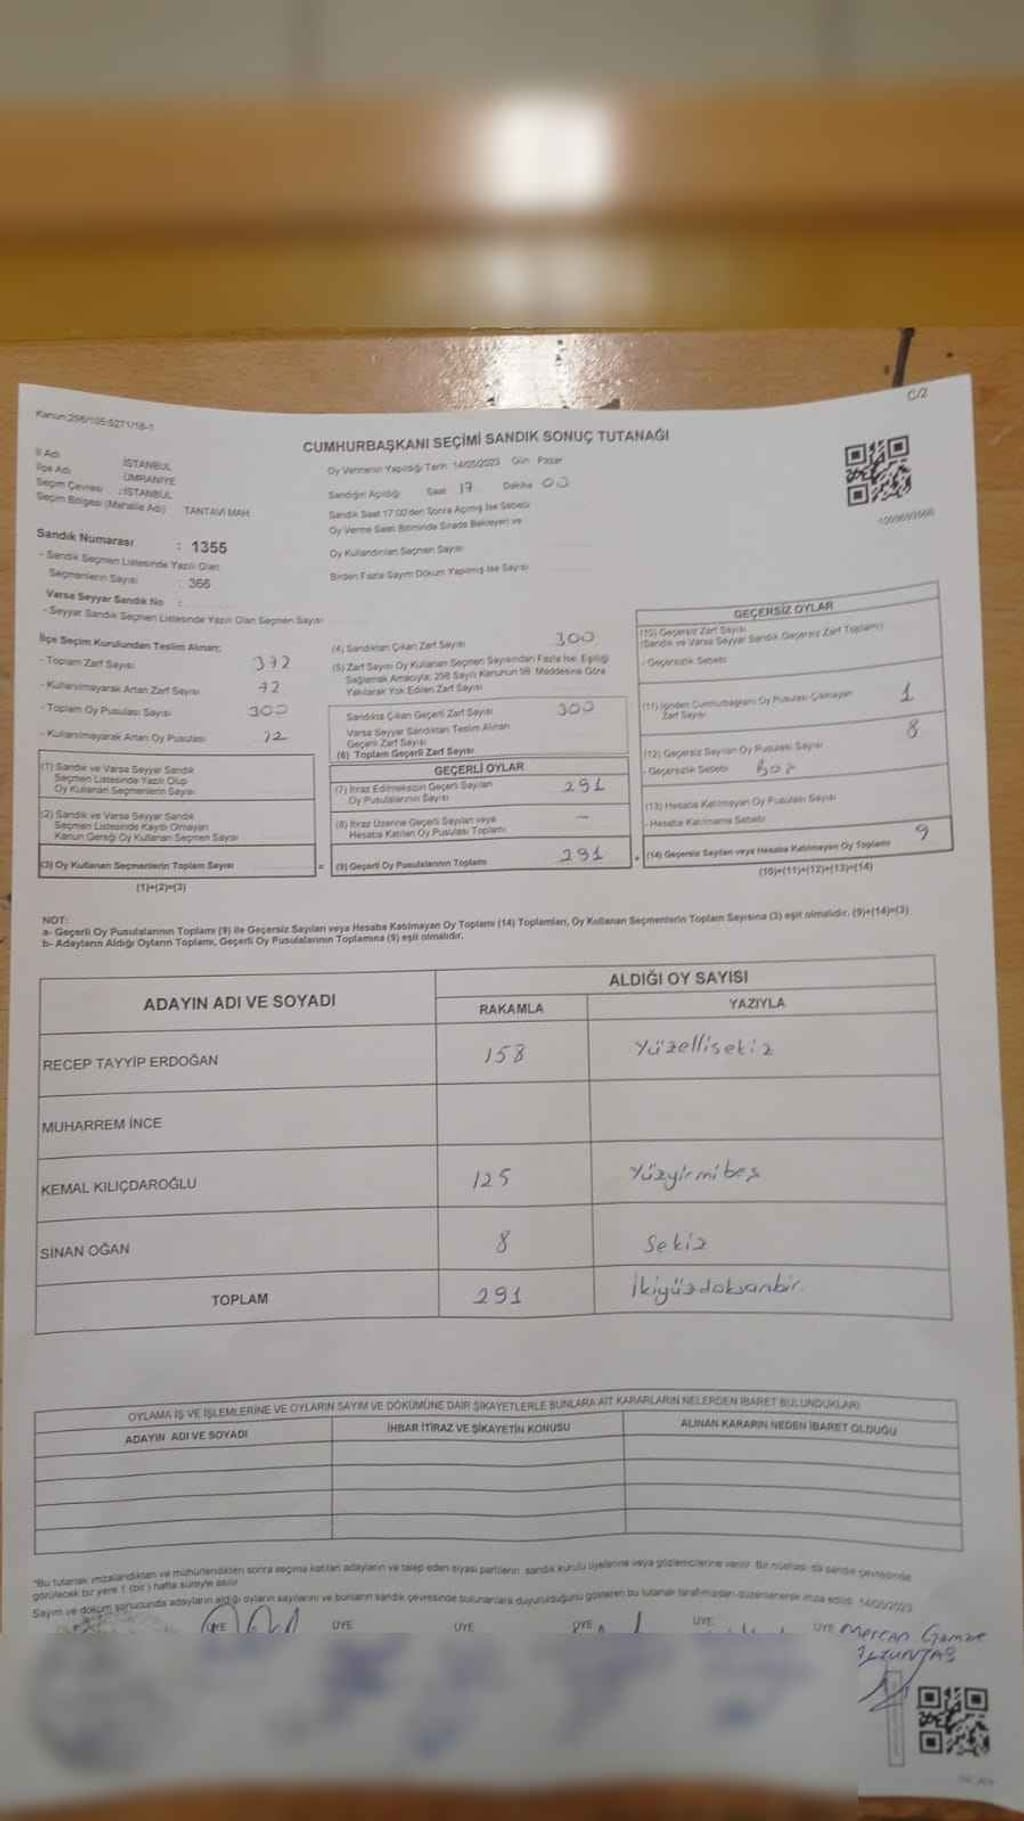 C/2
Kanun:298/105:5271/18-1
CUMHURBAŞKANI SEÇİMİ SANDIK SONUÇ TUTANAĞI
İl Adı : İSTANBUL
İlçe Adı : ÜMRANİYE
Seçim Çevresi : İSTANBUL
Seçim Bölgesi (Mahalle Adı) TANTAVİ MAH.
Sandık Numarası : 1355
- Sandık Seçmen Listesinde Yazılı Olan
Seçmenlerin Sayısı : 366
Varsa Seyyar Sandık No :
- Seyyar Sandık Seçmen Listesinde Yazılı Olan Seçmen Sayısı
Oy Vermenin Yapıldığı Tarih 14/05/2023 Gün Pazar
Sandığın Açıldığı Saat 17 Dakika 00
Sandık Saat 17.00'den Sonra Açılmış İse Sebebi
Oy Verme Saati Bitiminde Sırada Bekleyen ve
Oy Kullandırılan Seçmen Sayısı
Birden Fazla Sayım Döküm Yapılmış İse Sayısı
İlçe Seçim Kurulundan Teslim Alınan;
- Toplam Zarf Sayısı 372
- Kullanılmayarak Artan Zarf Sayısı 72
- Toplam Oy Pusulası Sayısı 300
- Kullanılmayarak Artan Oy Pusulası 72
(1) Sandık ve Varsa Seyyar Sandık
Seçmen Listesinde Yazılı Olup
Oy Kullanan Seçmenlerin Sayısı
(2) Sandık ve Varsa Seyyar Sandık
Seçmen Listesinde Kayıtlı Olmayan
Kanun Gereği Oy Kullanan Seçmen Sayısı
(3) Oy Kullanan Seçmenlerin Toplam Sayısı
(1)+(2)=(3)
(4) Sandıktan Çıkan Zarf Sayısı 300
(5) Zarf Sayısı Oy Kullanan Seçmen Sayısından Fazla İse, Eşitliği
Sağlamak Amacıyla; 298 Sayılı Kanunun 98. Maddesine Göre
Yakılarak Yok Edilen Zarf Sayısı
Sandıkta Çıkan Geçerli Zarf Sayısı 300
Varsa Seyyar Sandıktan Teslim Alınan
Geçerli Zarf Sayısı
(6) Toplam Geçerli Zarf Sayısı
GEÇERLİ OYLAR
(7) İtiraz Edilmeksizin Geçerli Sayılan
Oy Pusulalarının Sayısı 291
(8) İtiraz Üzerine Geçerli Sayılan veya
Hesaba Katılan Oy Pusulası Toplamı —
= (9) Geçerli Oy Pusulalarının Toplamı 291
GEÇERSİZ OYLAR
(10) Geçersiz Zarf Sayısı
(Sandık ve Varsa Seyyar Sandık Geçersiz Zarf Toplamı)
- Geçersizlik Sebebi
(11) İçinden Cumhurbaşkanı Oy Pusulası Çıkmayan
Zarf Sayısı 1
(12) Geçersiz Sayılan Oy Pusulası Sayısı 8
- Geçersizlik Sebebi
(13) Hesaba Katılmayan Oy Pusulası Sayısı
- Hesaba Katılmama Sebebi
+ (14) Geçersiz Sayılan veya Hesaba Katılmayan Oy Toplamı 9
(10)+(11)+(12)+(13)=(14)
NOT:
a- Geçerli Oy Pusulalarının Toplamı (9) ile Geçersiz Sayılan veya Hesaba Katılmayan Oy Toplamı (14) Toplamları, Oy Kullanan Seçmenlerin Toplam Sayısına (3) eşit olmalıdır. (9)+(14)=(3)
b- Adayların Aldığı Oyların Toplamı, Geçerli Oy Pusulalarının Toplamına (9) eşit olmalıdır.
ADAYIN ADI VE SOYADI
ALDIĞI OY SAYISI
RAKAMLA YAZIYLA
RECEP TAYYİP ERDOĞAN 158 Yüzellisekiz
MUHARREM İNCE
KEMAL KILIÇDAROĞLU 125 Yüzyirmibeş
SİNAN OĞAN 8 Sekiz
TOPLAM 291 İkiyüzdoksanbir
OYLAMA İŞ VE İŞLEMLERİNE VE OYLARIN SAYIM VE DÖKÜMÜNE DAİR ŞİKAYETLERLE BUNLARA AİT KARARLARIN NELERDEN İBARET BULUNDUKLARI
ADAYIN ADI VE SOYADI İHBAR İTİRAZ VE ŞİKAYETİN KONUSU ALINAN KARARIN NEDEN İBARET OLDUĞU
"Bu tutanak imzalandıktan ve mühürlendikten sonra seçime katılan adayların ve talep eden siyasi partilerin sandık kurulu üyelerine veya gözlemcilerine verilir. Bir nüshası da sandık çevresinde
görülecek bir yere 1 (bir) hafta süreyle asılır.
Sayım ve döküm sonucunda adayların aldığı oyların sayılarını ve bunların sandık çevresinde bulunanlara duyurulduğunu gösteren bu tutanak tarafımızdan düzenlenerek imza edildi. 14/05/2023
ÜYE ÜYE ÜYE ÜYE ÜYE ÜYE Mercan Gamze